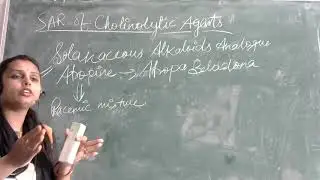 SAR of Cholinolytic Agents
Solanaceous Alkaloids Analogue
Atropine → Atropa Beladona
Racemic mixture